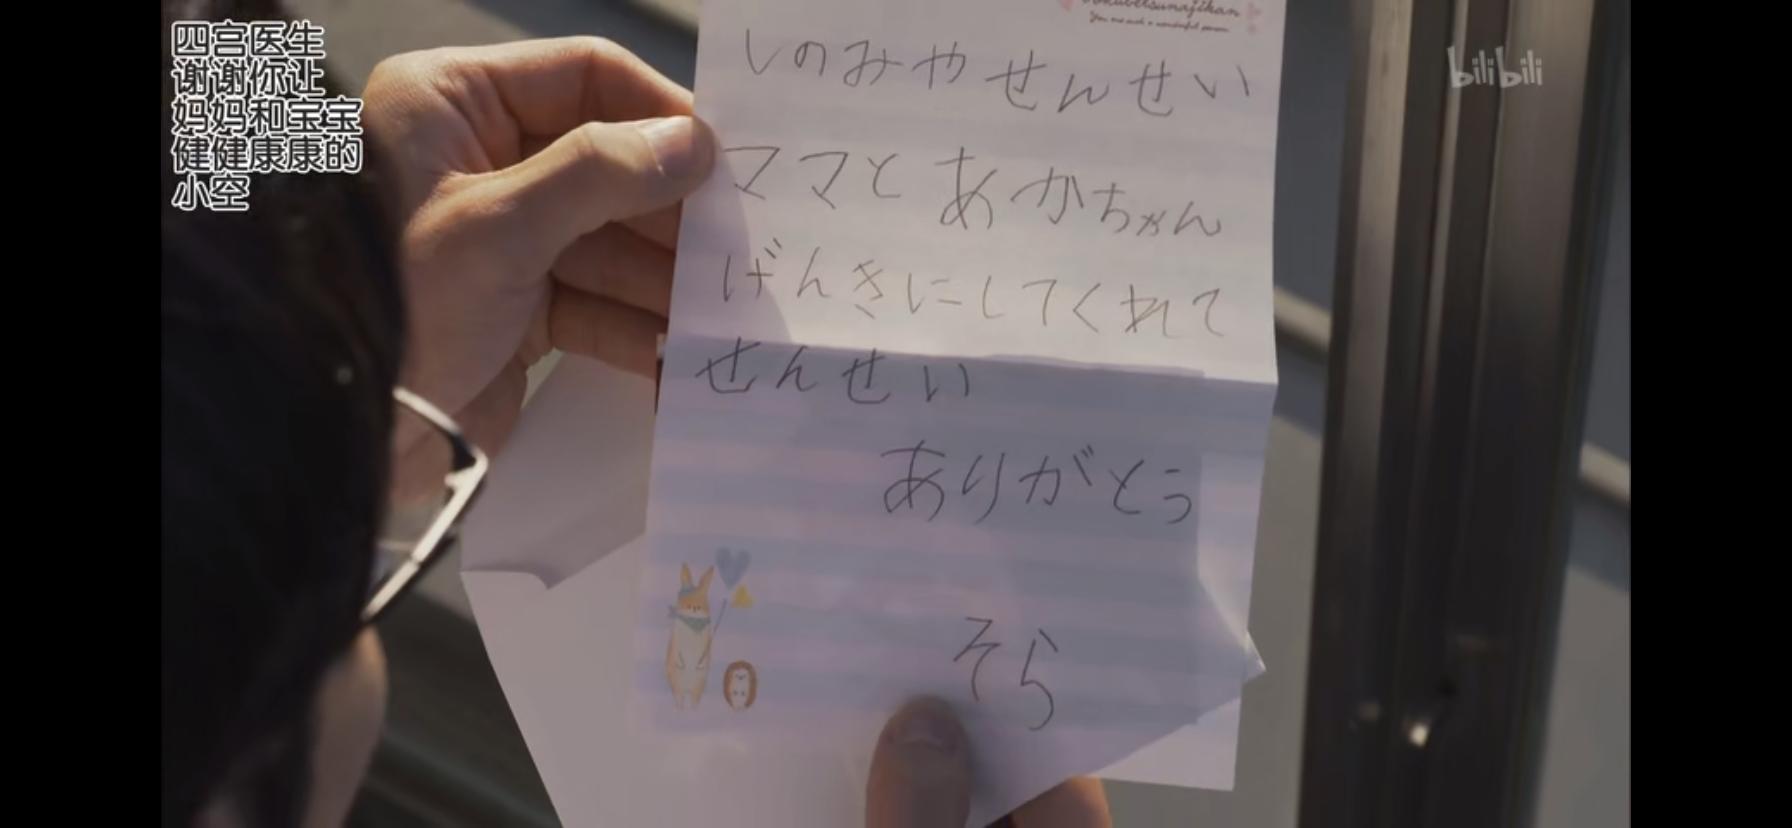 四宫医生
谢谢你让
妈妈和宝宝
健健康康的
小空
bilibili
しのみやせんせい
ママとあかちゃん
げんきにしてくれて
せんせい
ありがとう
そら